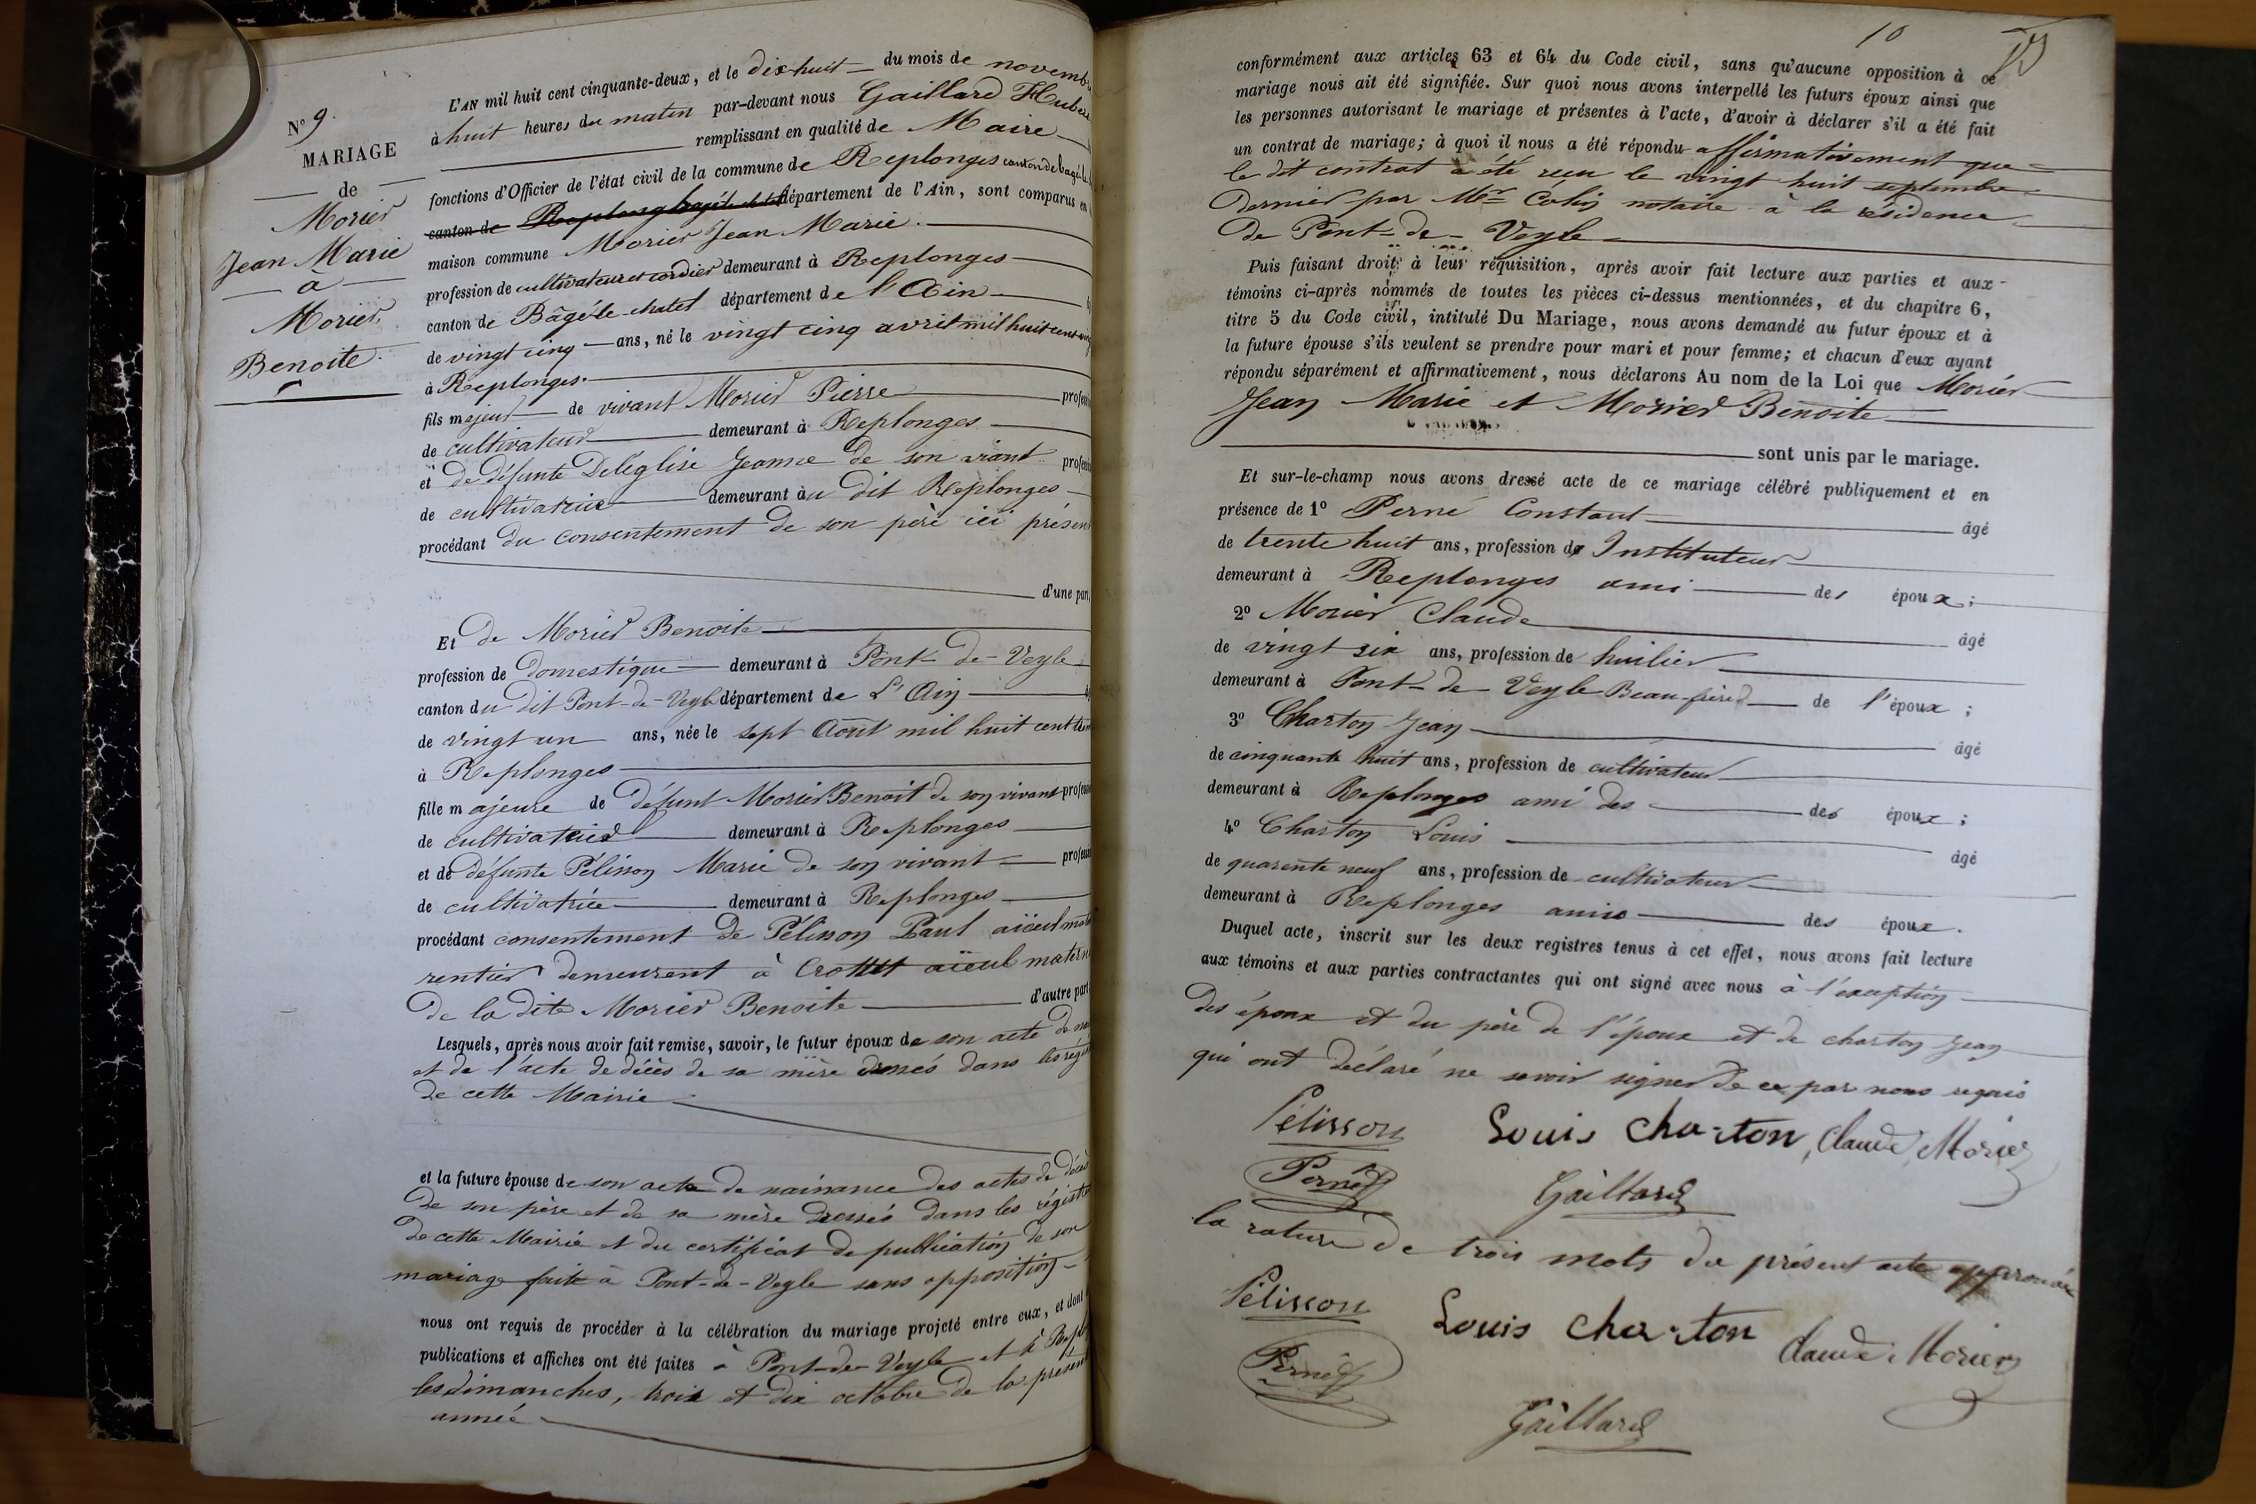 Nº 9.
MARIAGE
de
Morier
Jean Marie
à
Morier
Benoite.
L'AN mil huit cent cinquante-deux, et le dix-huit du mois de novemb
à huit heures du matin par-devant nous Gaillard Huber
remplissant en qualité de Maire
fonctions d'Officier de l'état civil de la commune de Replonges canton de bagé le
canton de département de l'Ain, sont comparus en
maison commune Morier Jean Marie.
profession de cultivateur et cordier demeurant à Replonges
canton de Bâgé-le-chatel département de l'Ain
de vingt cinq ans, né le vingt cinq avril mil huit cent
à Replonges.
fils majeur de vivant Morier Pierre profess
de cultivateur demeurant à Replonges
et de défunte Deléglise Jeanne de son viant profess
de cultivatrice demeurant àu dit Replonges
procédant du consentement de son père ici présen
d'une part,
Et de Morier Benoite
profession de Domestique demeurant à Pont-de-Veyle
canton du dit Pont-de-Veyle département de L'Ain
de vingt un ans, née le sept Août mil huit cent
à Replonges
fille majeure de défunt Morier Benoit de son vivant profess
de cultivatried demeurant à Replonges
et de défunte Pélisson Marie de son vivant profess
de cultivatrice demeurant à Replonges
procédant consentement de Pélisson Paul aïeul mat
rentier demeurent à Crottet aïeul matern
de la dite Morier Benoite d'autre part
Lesquels, après nous avoir fait remise, savoir, le futur époux de son acte de na
et de l'acte de décès de sa mère dressés dans les régis
de cette Mairie
et la future épouse de son acte de naissance des actes de décès
de son père et de sa mère dressés dans les régistre
de cette Mairie et du certificat de publication de son
mariage faite à Pont-de-Veyle sans opposition
nous ont requis de procéder à la célébration du mariage projeté entre eux, et dont
publications et affiches ont été faites à Pont-de-Veyle et à Repl
les dimanches, trois et dix octobre de la présen
année
10
conformément aux articles 63 et 64 du Code civil, sans qu'aucune opposition à ce
mariage nous ait été signifiée. Sur quoi nous avons interpellé les futurs époux ainsi que
les personnes autorisant le mariage et présentes à l'acte, d'avoir à déclarer s'il a été fait
un contrat de mariage; à quoi il nous a été répondu affirmativement que
le dit contrat a été reçu le vingt huit septembre
dernier par Mr Colin notaire à la résidence
de Pont-de-Veyle
Puis faisant droit à leur réquisition, après avoir fait lecture aux parties et aux
témoins ci-après nommés de toutes les pièces ci-dessus mentionnées, et du chapitre 6,
titre 5 du Code civil, intitulé Du Mariage, nous avons demandé au futur époux et à
la future épouse s'ils veulent se prendre pour mari et pour femme; et chacun d'eux ayant
répondu séparément et affirmativement, nous déclarons Au nom de la Loi que Morier
Jean Marie et Morier Benoite
sont unis par le mariage.
Et sur-le-champ nous avons dressé acte de ce mariage célébré publiquement et en
présence de 1º Perné Constant âgé
de trente huit ans, profession de Instituteur
demeurant à Replonges ami des époux;
2º Morier Claude âgé
de vingt six ans, profession de huilier
demeurant à Pont-de-Veyle Beau-frère de l'époux;
3º Charton Jean âgé
de cinquante huit ans, profession de cultivateur
demeurant à Replonges ami des des époux;
4º Charton Louis âgé
de quarente neuf ans, profession de cultivateur
demeurant à Replonges amis des époux.
Duquel acte, inscrit sur les deux registres tenus à cet effet, nous avons fait lecture
aux témoins et aux parties contractantes qui ont signé avec nous à l'exception
des époux et du père de l'époux et de charton Jean
qui ont déclaré ne savoir signer de ce par nous requis
Pélisson Louis charton, Claude Morier
Perné Gaillard
la rature de trois mots du présent acte approuvée
Pélisson Louis charton Claude Morier
Perné
Gaillard